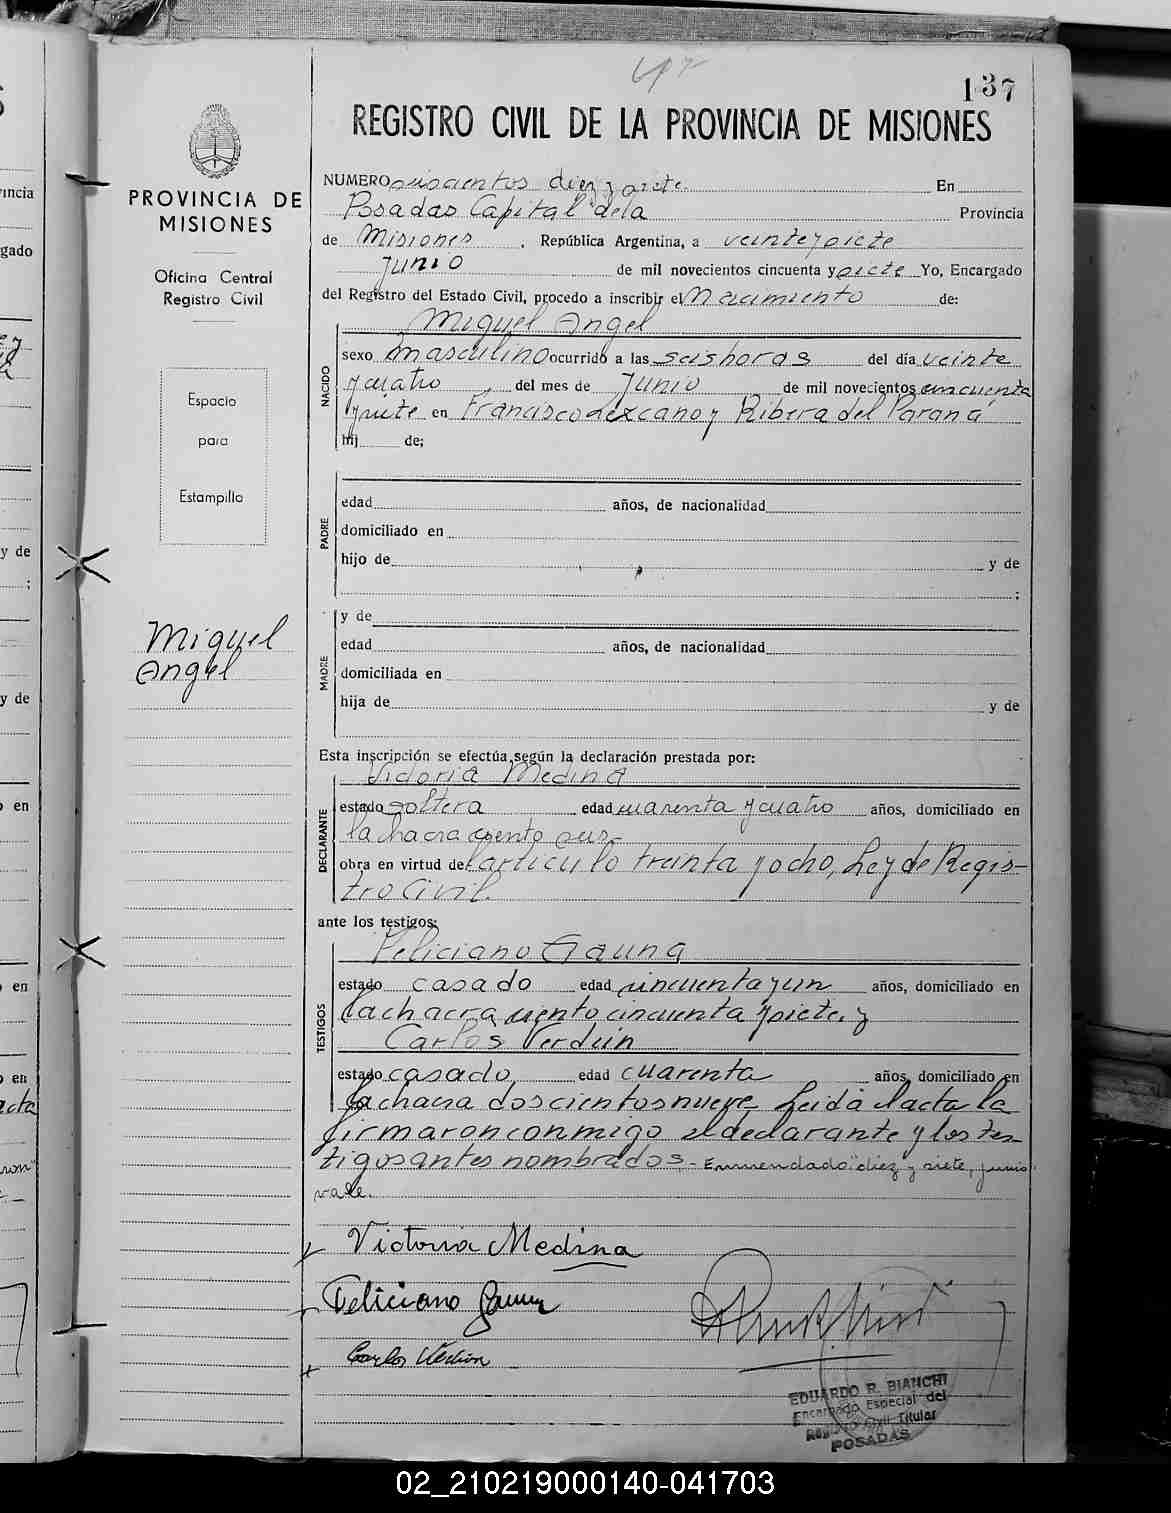 137
REGISTRO CIVIL DE LA PROVINCIA DE MISIONES
PROVINCIA DE
MISIONES
Oficina Central
Registro Civil
Espacio
para
Estampilla
Miguel
Angel
NUMERO seiscientos diez y siete. En
Posadas Capital de la Provincia
de Misiones, República Argentina, a veinte y siete
junio de mil novecientos cincuenta y siete Yo, Encargado
del Registro del Estado Civil, procedo a inscribir el Nacimiento de:
Miguel Angel
NACIDO
sexo masculino ocurrido a las seis horas del día veinte
y cuatro, del mes de junio de mil novecientos cincuenta
y siete en Francisco de Lezcano y Ribera del Paraná
hij de;
PADRE
edad años, de nacionalidad
domiciliado en
hijo de y de
;
MADRE
y de
edad años, de nacionalidad
domiciliada en
hija de y de
Esta inscripción se efectúa según la declaración prestada por:
Victoria Medina
DECLARANTE
estado soltera edad cuarenta y cuatro años, domiciliado en
la chacra ciento seis-
obra en virtud del artículo treinta y ocho, Ley de Regis-
tro Civil.
ante los testigos:
Feliciano Gauna
TESTIGOS
estado casado edad cincuenta y un años, domiciliado en
la chacra ciento cincuenta y siete. y
Carlos Verdún
estado casado edad cuarenta años, domiciliado en
la chacra doscientos nueve. Leida el acta la
firmaron conmigo el declarante y los tes-
tigos antes nombrados - Enmendado: "diez y siete, junio"
vale.
Victoria Medina
Feliciano Gauna
Carlos Verdun
EDUARDO R. BIANCHI
Encargado Especial del
Registro Civil Titular
POSADAS
02_210219000140-041703